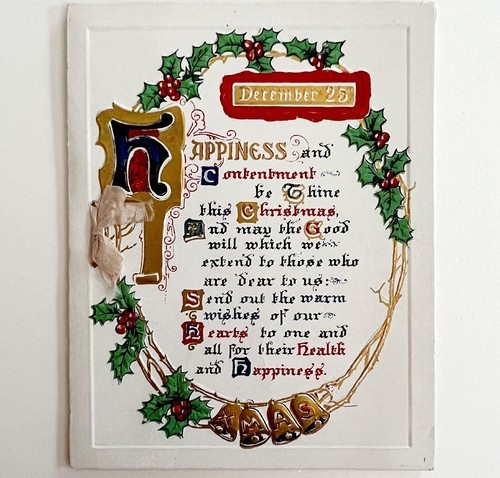 December 25
HAPPINESS and
Contentment
be Thine
this Christmas,
And may the Good
will which we
extend to those who
are dear to us:
Send out the warm
wishes of our
Hearts to one and
all for their Health
and Happiness.
XMAS